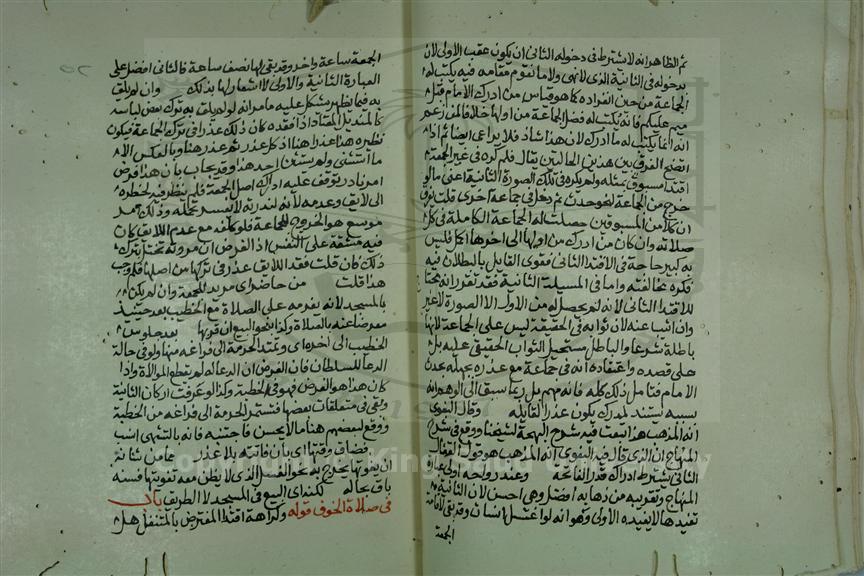 ثم الظاهر انه لا يشترط في دخوله الثاني ان يكون عقب الاولى لان
بدخوله في الثانية الذي لا نهي ولا ما نقوم مقامه فيه يكتب له
الجماعة من حين انفراده كما هو قياس من ادرك الامام قبل
عليكم فانه يكتب له فضل الجماعة من اولها خلافا لمن زعم
انه انما يكتب له ما ادرك لان هذا شاذ فلا يراعى ايضا ثم اذا
اتضح الفرق بين هذين الحالتين يقال فلم كره في غير الجمعة
اقتدا مسبوق بمثله ولم يكره في تلك الصورة الثانية اعني ما لو
خرج من الجماعة لنحو حدث ثم دخل في جماعة اخرى قلت
ان كلا من المسبوقين حصلت له الجماعة الكاملة في كل
صلاته وان كان من ادرك من اولها الى اخرها اكمل فليس
به كبير حاجة في الاقتدا الثاني فقوى القايل بالبطلان فيه
فكره مخالفته واما في المسيلة الثانية فقد تقرر انه محتاج
للاقتدا الثاني لانه لم يحصل له من الاول الا الصورة لا غير
وان اثيب عنه لان ثوابه في الحقيقة ليس على الجماعة لانها
باطلة شرعا والباطل مستحيل الثواب الحقيقي عليه بل
على قصده واعتقاده انه في جماعة مع عذره بجهله بحدث
الامام فتامل ذلك كله فانه مهم بل ربما سبق الى الوهم انه
بسببه يستند لمدرك يكون عذرا لقايله وقال البغوي
انه المذهب هذا تبعت فيه شرح البهجة لشيخنا ووقع في شرح
المنهاج ان الذي قال فيه البغوي انه المذهب هو قول القفال
الثاني يشترط ادراك قدر الفاتحة وعند رواحه اولى عبارة
المنهاج وتقريبه من ذهابه افضل وهي احسن لان الثانية
تفيد ما لا يفيده الاولى وهو انه لو اغتسل انسان وقد بقي لاقامة
الجمعة
الجمعة ساعة واخر وقد بقي لها نصف ساعة فالثاني افضل على
العبارة الثانية والاولى لا اشعار لها بذلك وان لم يلق
به فيما يظهر مشكل عليه ما مر انه لو لم يلق به ترك بعض لباسه
كالمنديل المعتاد اذا فقده كان ذلك عذرا في ترك الجماعة فيكون
نظيره هنا عذرا هنا اذ كل عذر ثم عذر هنا وبالعكس الا
ما استثنى ولم يستثن احد هذا وقد يجاب بان هذا فرض
امر نادر يتوقف عليه ادراك اصل الجمعة فلم ينظر فيه لخطره
الى لايق وعدمه لانه لندرته لا يعسر تحمله وذلك
موسع هو الخروج للجماعة فلو كلفه مع عدم اللايق كان
فيه مشقة على النفس اذ الفرض ان مروته تختل بترك
ذلك كان قلت فقد اللايق عذر في تركها من اصلها فلم وجب
هذا قلت من حاضر اي مريد للجمعة وان لم يكن
بالمسجد لانه بعزمه على الصلاة مع الخطيب يعد حينئذ
معرضا عنه بالصلاة وكذا نحو البيع ان قربها بعد جلوس
الخطيب الى اخره اي وتمتد الحرمة الى فراغه منها ولو في حالة
الدعا للسلطان فان الفرض ان الدعا له لم يقطع الموالاة واذا
كان هذا هو الفرض فهو في الخطبة وكذا لو عرفت اركان الثانية
وبقي في متعلقات بعضها فتستمر الحرمة الى فراغه من الخطبة
ووقع لبعضهم هنا ما لا يحسن فاجتنبه فانه بالتشهي اشبه
فضاق وقتها اي بان فاتته بلا عذر عما من شانه
ان يفوتها يخرج به نحو الغسل الذي لا يظن معه تفويتها فسنه
باق بحاله لكنه اي البيع في المسجد لا الطريق باب
في صلاة الخوف قوله ولكراهة اقتدا المفترض بالمتنفل هل